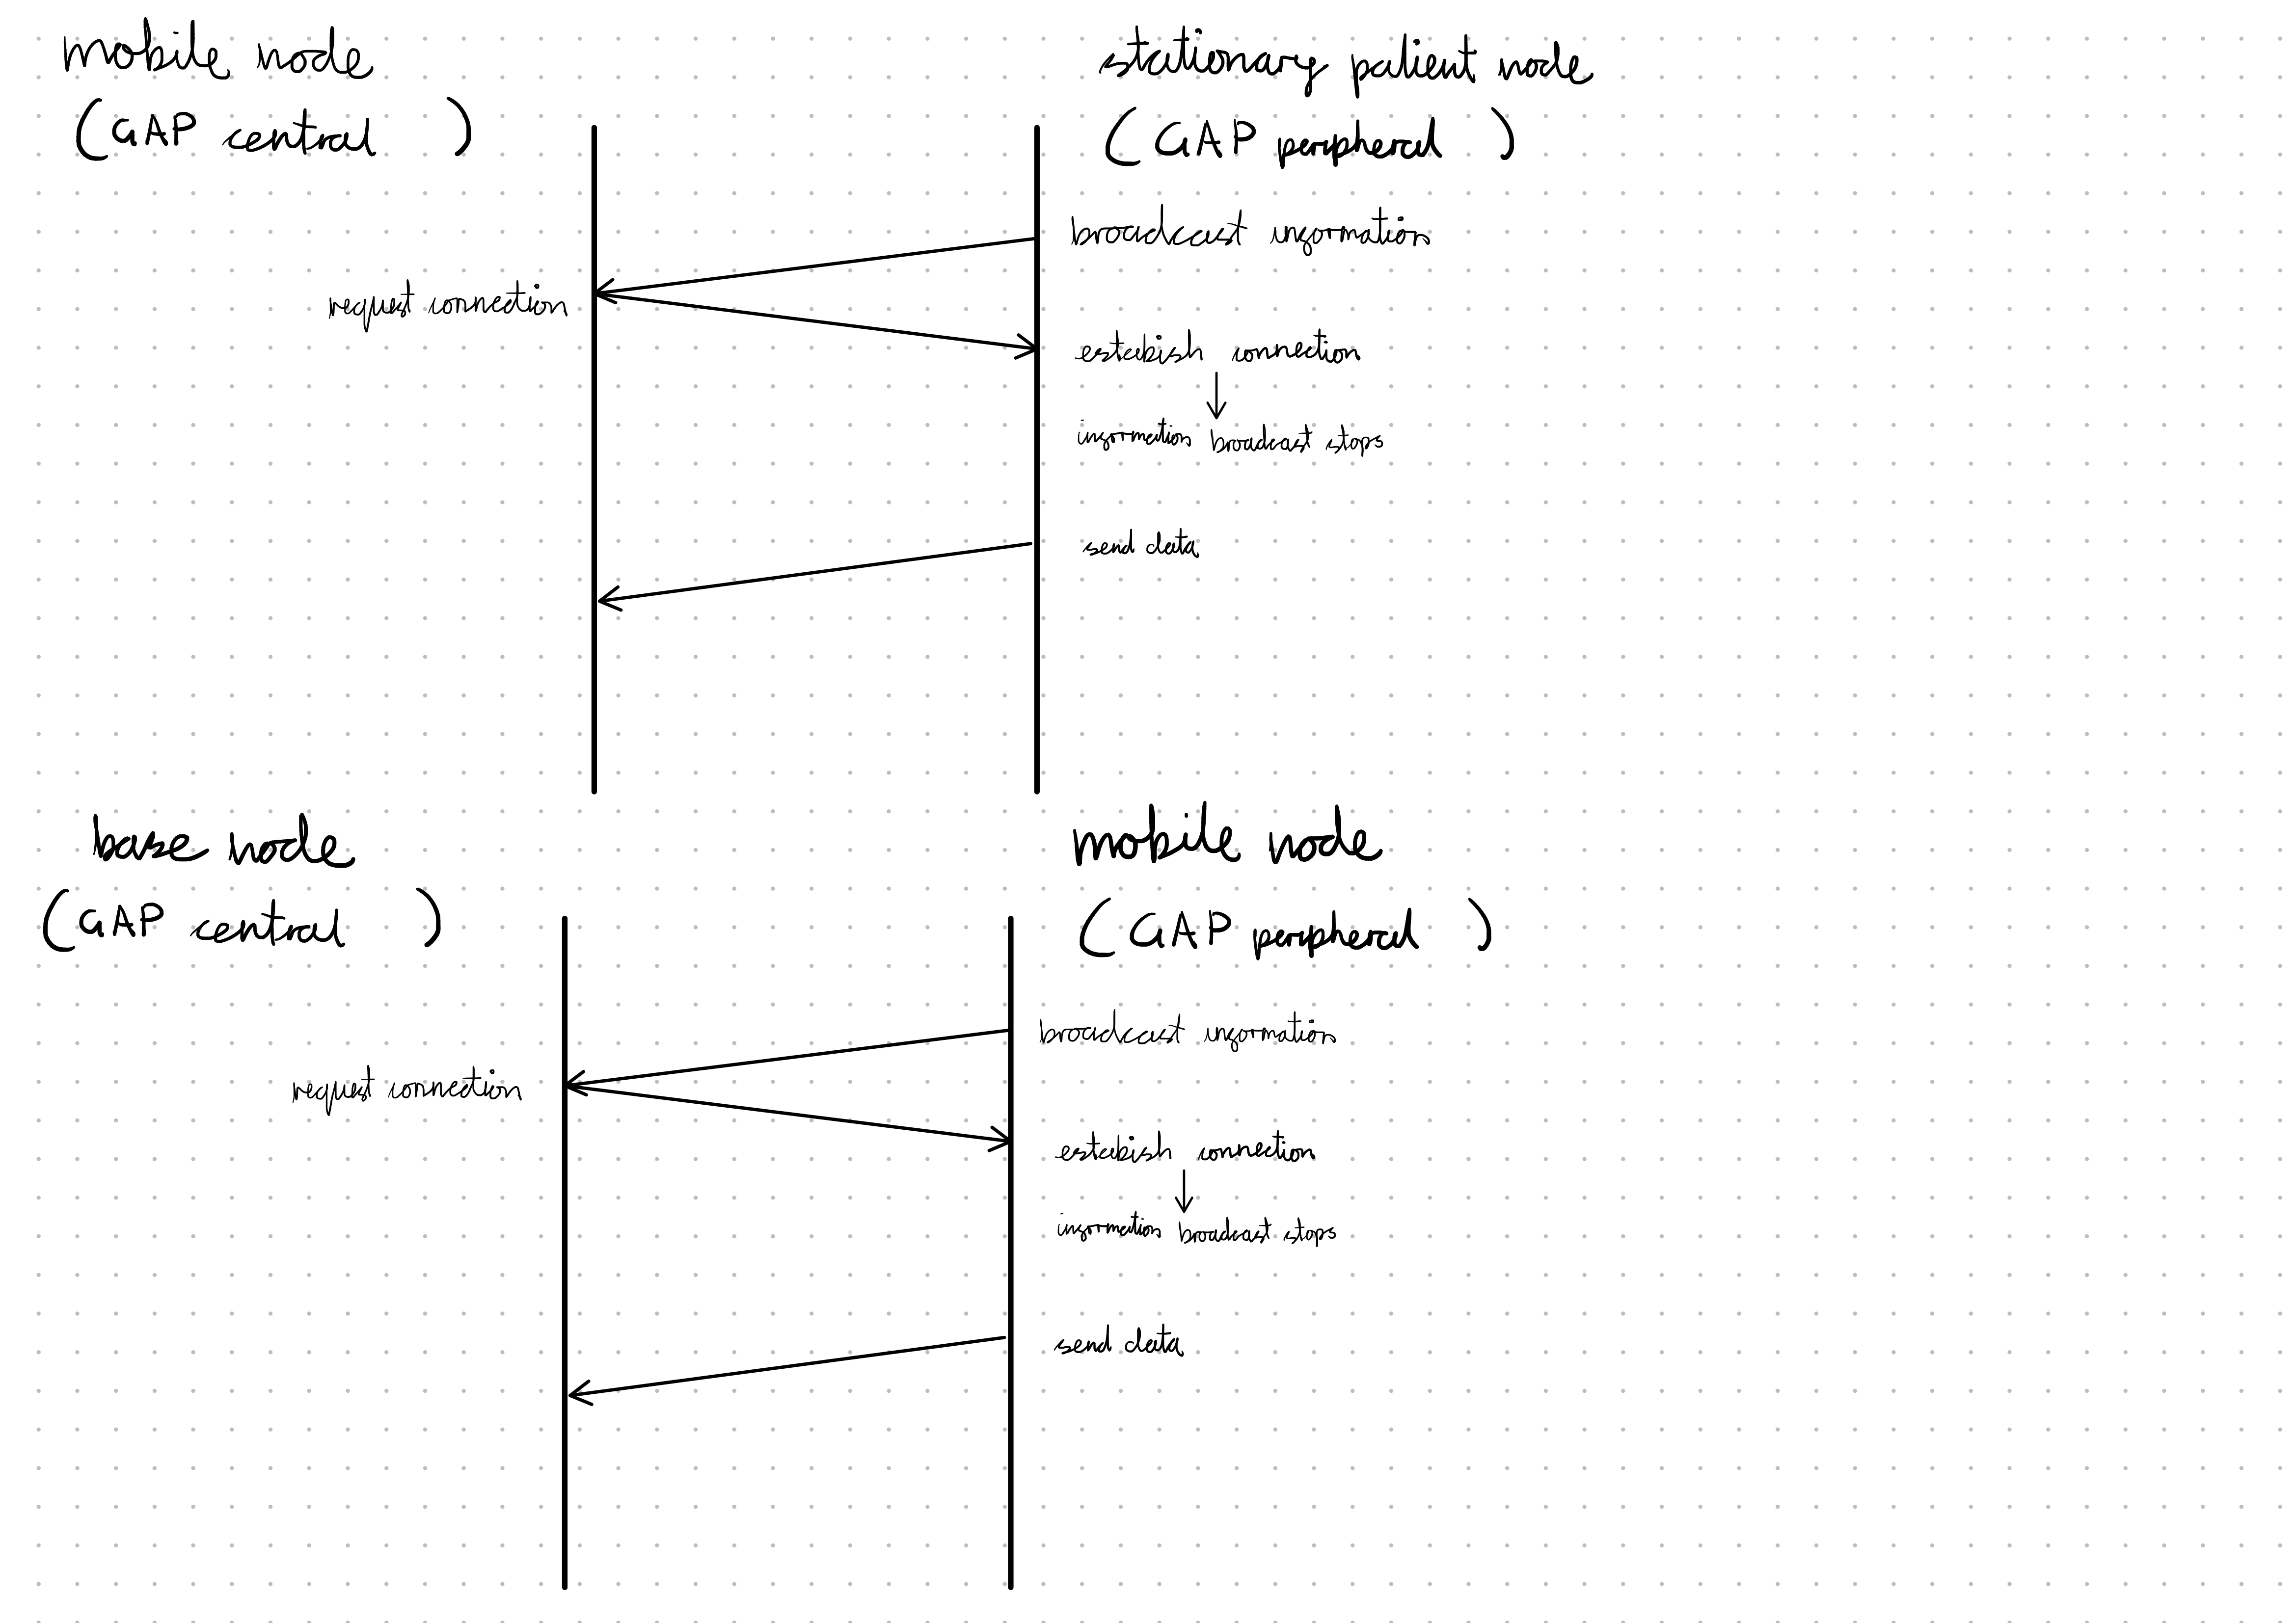 mobile node
(GAP central )
stationary patient node
(GAP peripheral )
broadcast information
request connection
estabish connection
information broadcast stops
send data
base node
(GAP central )
mobile node
(GAP peripheral )
broadcast information
request connection
estabish connection
information broadcast stops
send data